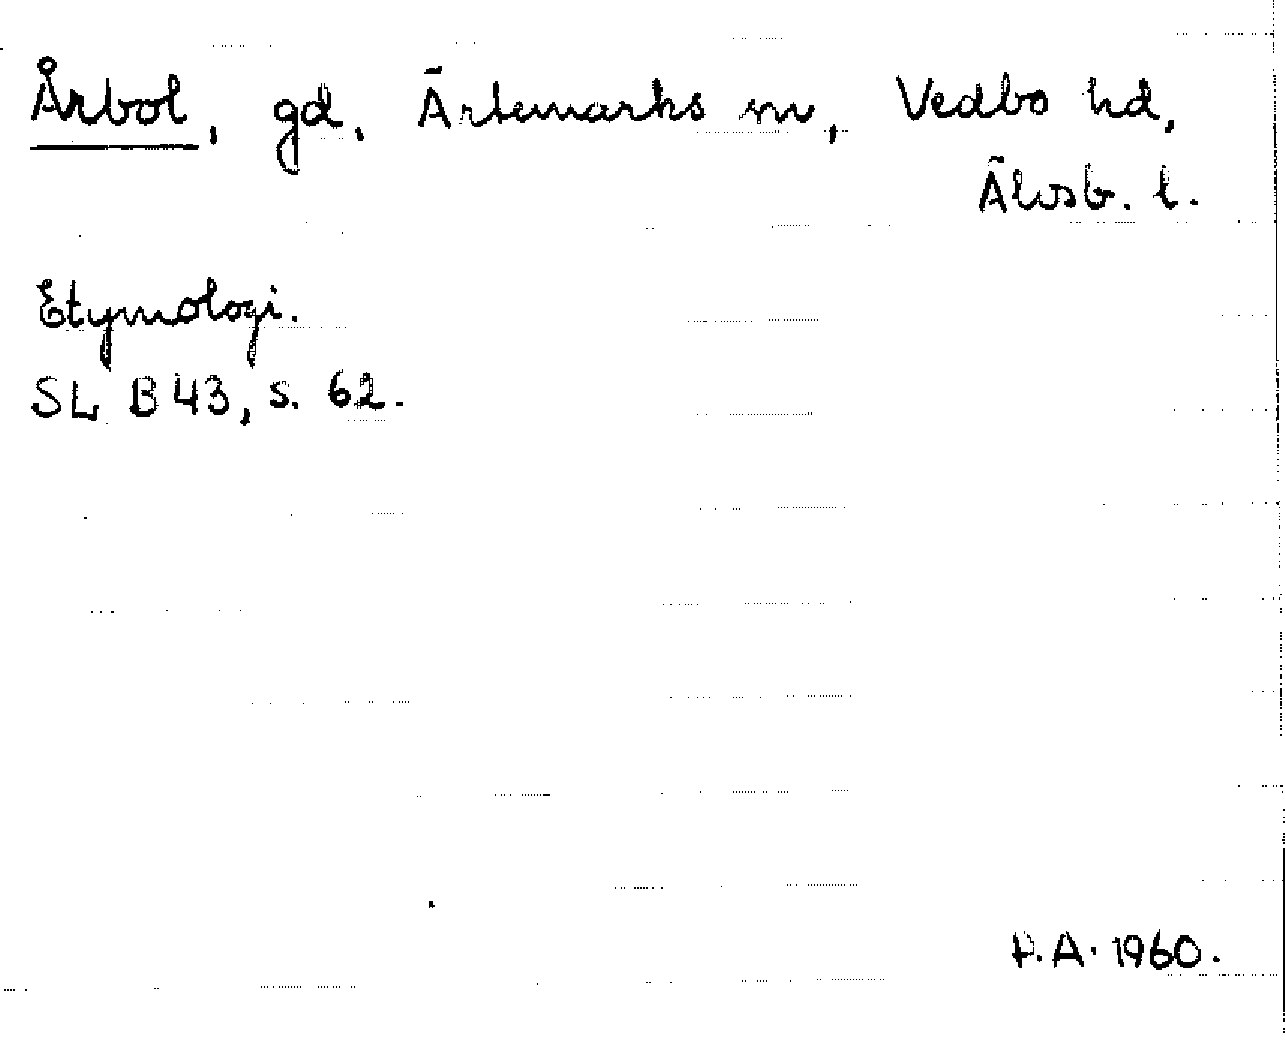 Årbol, gd, Ärtemarks sn, Vedbo hd,
Älvsb. l.
Etymologi.
SL B 43, s. 62.
P.A. 1960.